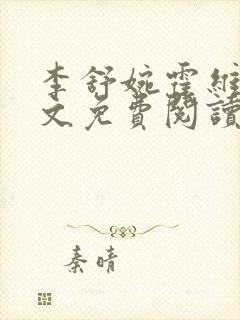 李舒婉霍維
文免費閱讀
秦晴